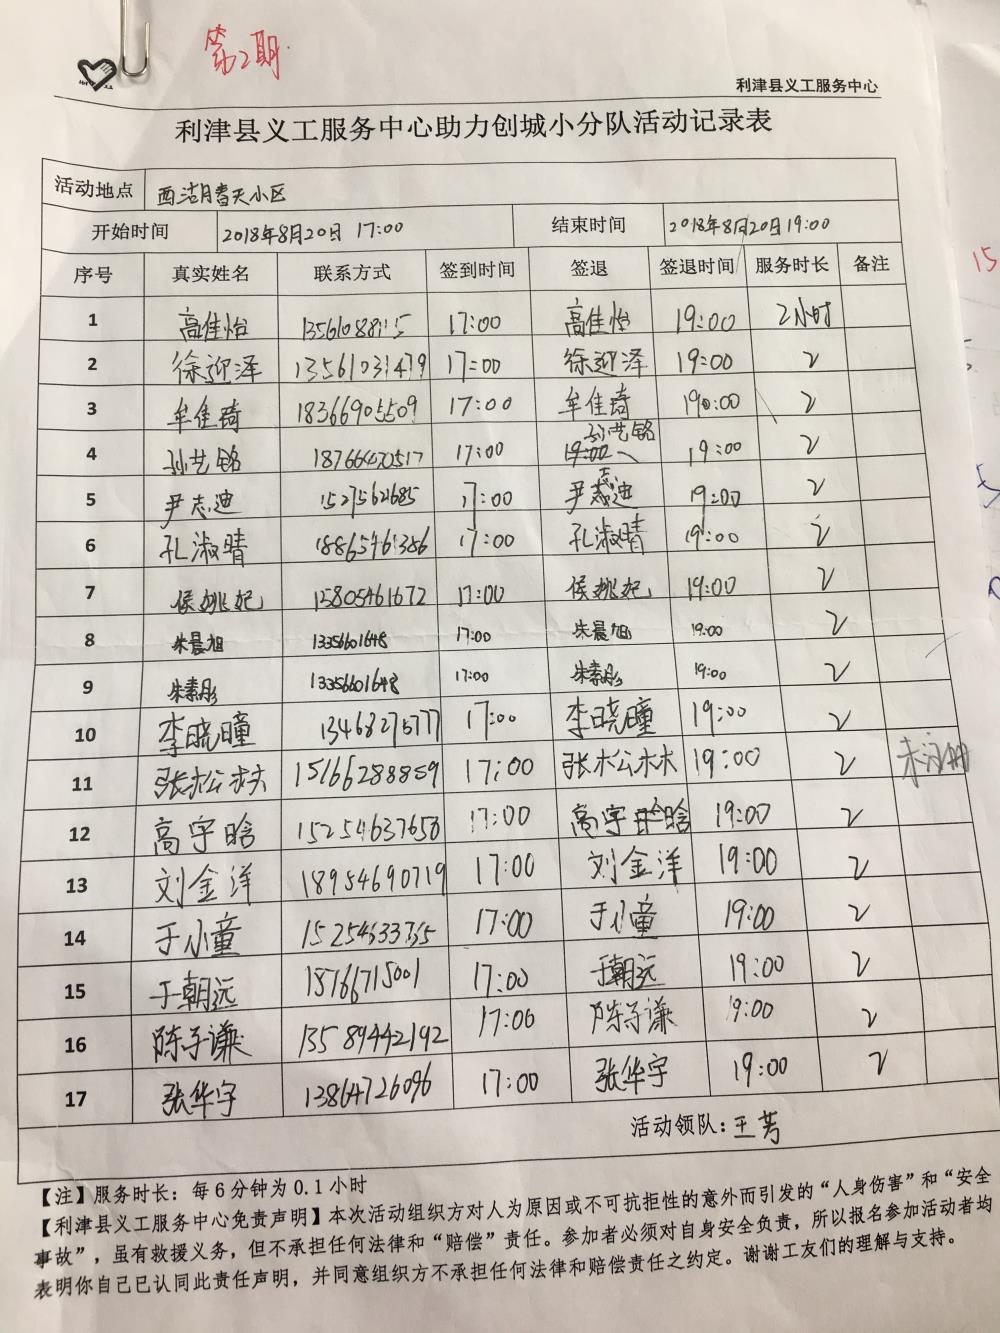 第2期
利津县义工服务中心
利津县义工服务中心助力创城小分队活动记录表
活动地点 西湖春天小区
开始时间 2018年8月20日 17:00 结束时间 2018年8月20日19:00
序号 真实姓名 联系方式 签到时间 签退 签退时间 服务时长 备注
1 高佳怡 17:00 高佳怡 19:00 2小时
2 徐迎泽 13561031479 17:00 徐迎泽 19:00 2
3 牟佳琦 18366905509 17:00 牟佳琦 19:00 2
4 孙艺铭 18766470517 17:00 孙艺铭 19:00 2
5 尹志迪 1527562685 17:00 尹志迪 19:00 2
6 孔淑晴 17:00 孔淑晴 19:00 2
7 侯姚妃 15805461672 17:00 侯姚妃 19:00 2
8 朱晨旭 13356601648 17:00 朱晨旭 19:00 2
9 朱素彤 13356601648 17:00 朱素彤 19:00 2
10 李晓曈 13468275777 17:00 李晓曈 19:00 2
11 张松林 15166288859 17:00 张松林 19:00 2
12 高宇晗 15254637658 17:00 高宇晗 19:00 2
13 刘金洋 18954690719 17:00 刘金洋 19:00 2
14 于小童 17:00 于小童 19:00 2
15 于朝远 18766715001 17:00 于朝远 19:00 2
16 陈子谦 13589442192 17:00 陈子谦 19:00 2
17 张华宇 13864726096 17:00 张华宇 19:00 2
活动领队:王芳
【注】服务时长：每6分钟为0.1小时
【利津县义工服务中心免责声明】本次活动组织方对人为原因或不可抗拒性的意外而引发的“人身伤害”和“安全
事故”，虽有救援义务，但不承担任何法律和“赔偿”责任。参加者必须对自身安全负责，所以报名参加活动者均
表明你自己已认同此责任声明，并同意组织方不承担任何法律和赔偿责任之约定。谢谢工友们的理解与支持。
15